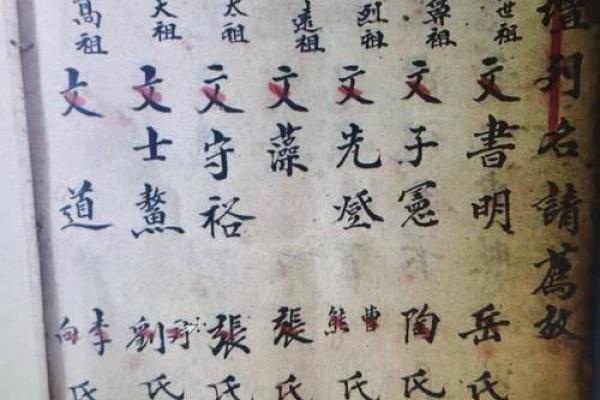 壇列名請薦故
世祖文書明岳氏
鼻祖文子憲陶氏
烈祖文先燈曹熊氏
遠祖文藻張氏
太祖文守裕張氏
大祖文士鰲劉氏
高祖文道李向氏